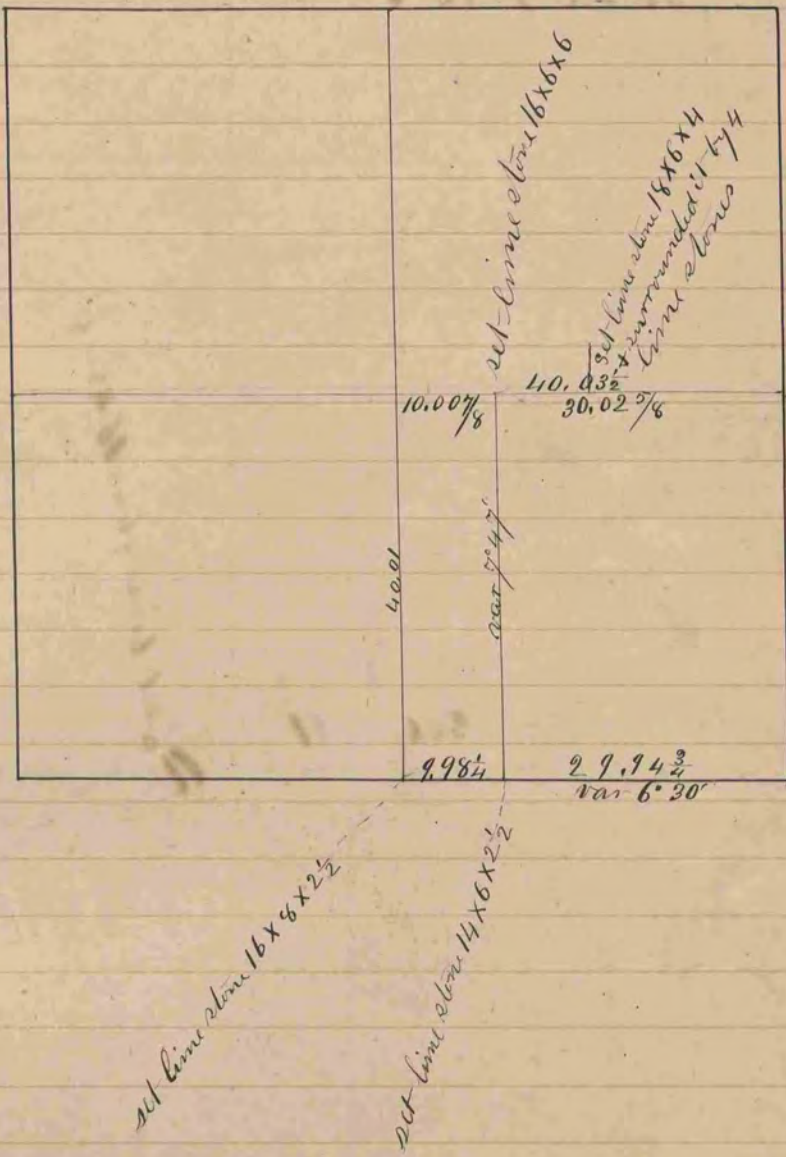 set lime stone 16x6x6
set lime stone 18x6x4
& surrounded it by 4
lime stones
40.03½
10.007/8
30.02 5/8
40.01
var 7°47'
9.98¼
29.94¾
var 6°30'
set lime stone 16x8x2½
set lime stone 14x6x2½